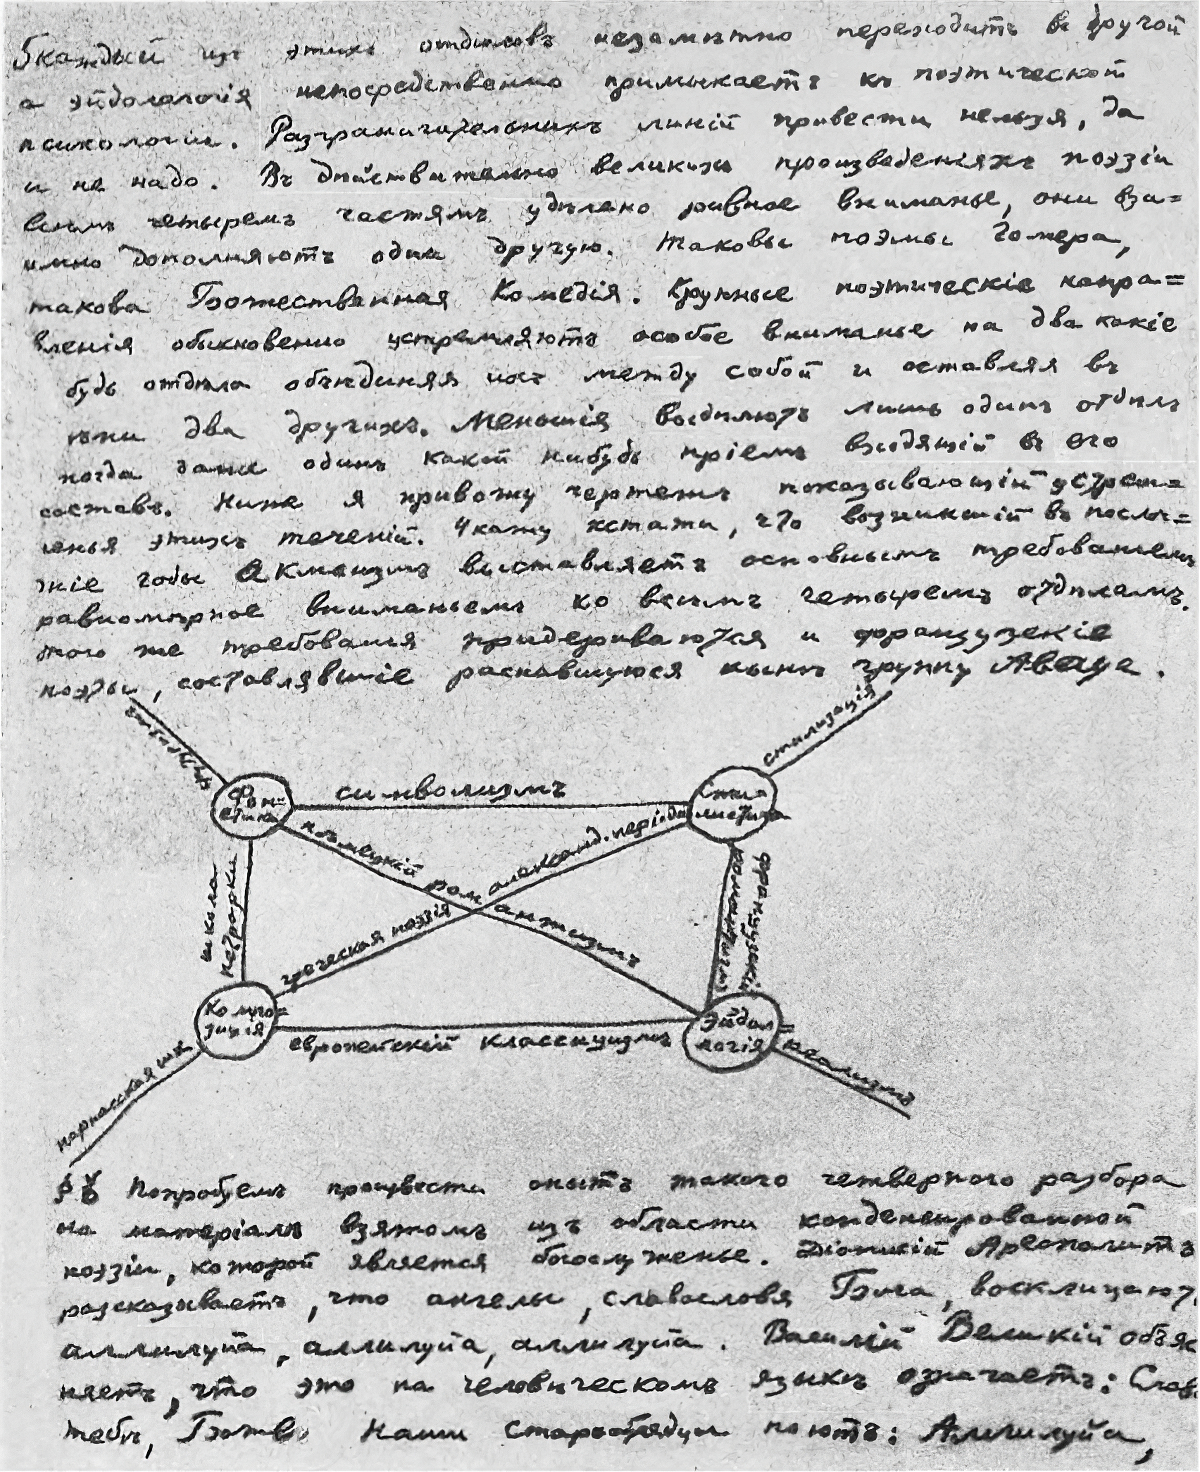 Каждый изъ этихъ отдѣловъ незамѣтно переходитъ въ другой
а эйдолологія непосредственно примыкаетъ къ поэтической
психологіи. Разграничительныхъ линій привести нельзя, да
и не надо. Въ дѣйствительно великихъ произведеніяхъ поэзіи
всѣмъ четыремъ частямъ удѣлено равное вниманье, они вза=
имно дополняютъ одна другую. Таковы поэмы Гомера,
такова Божественная Комедія. Крупные поэтическіе напра=
вленія обыкновенно устремляютъ особое вниманье на два какіе
будь отдѣла объединяя ихъ между собой и оставляя въ
тѣни два другихъ. Меньшія выдѣляютъ лишь одинъ отдѣлъ
иногда даже одинъ какой нибудь пріемъ входящій въ его
составъ. Ниже я привожу чертежъ показывающій устрем=
ленья этихъ теченій. Укажу кстати, что возникшій въ послѣ=
дніе годы Акмеизмъ выставляетъ основнымъ требованіемъ
равномѣрное вниманьемъ ко всѣмъ четыремъ отдѣламъ.
того же требованія придерживаются и французскіе
поэты, составлявшіе распавшуюся нынѣ группу Abbaye.
стилизація
Фон=
етика
символизмъ
Сти=
листика
нѣмецкій романтизмъ
греческая поэзія александ. періода
школа
петрарки
французскій
романтизмъ
Компо=
зиція
европейскій классицизмъ
Эйдол=
логія
парнасская шк.
реализмъ
§ V Попробуемъ произвести опытъ такого четвернаго разбора
на матеріалѣ взятомъ изъ области конденсированной
поэзіи, которой является богослуженье. Діонисій Ареопагитъ
разсказываетъ, что ангелы, славословя Бога, восклицаютъ
аллилуйа, аллилуйа, аллилуйа. Василій Великій объяс
няетъ, что это на человѣческомъ языкѣ означаетъ: Слава
тебѣ, Боже. Наши старообрядцы поютъ: Аллилуйа,